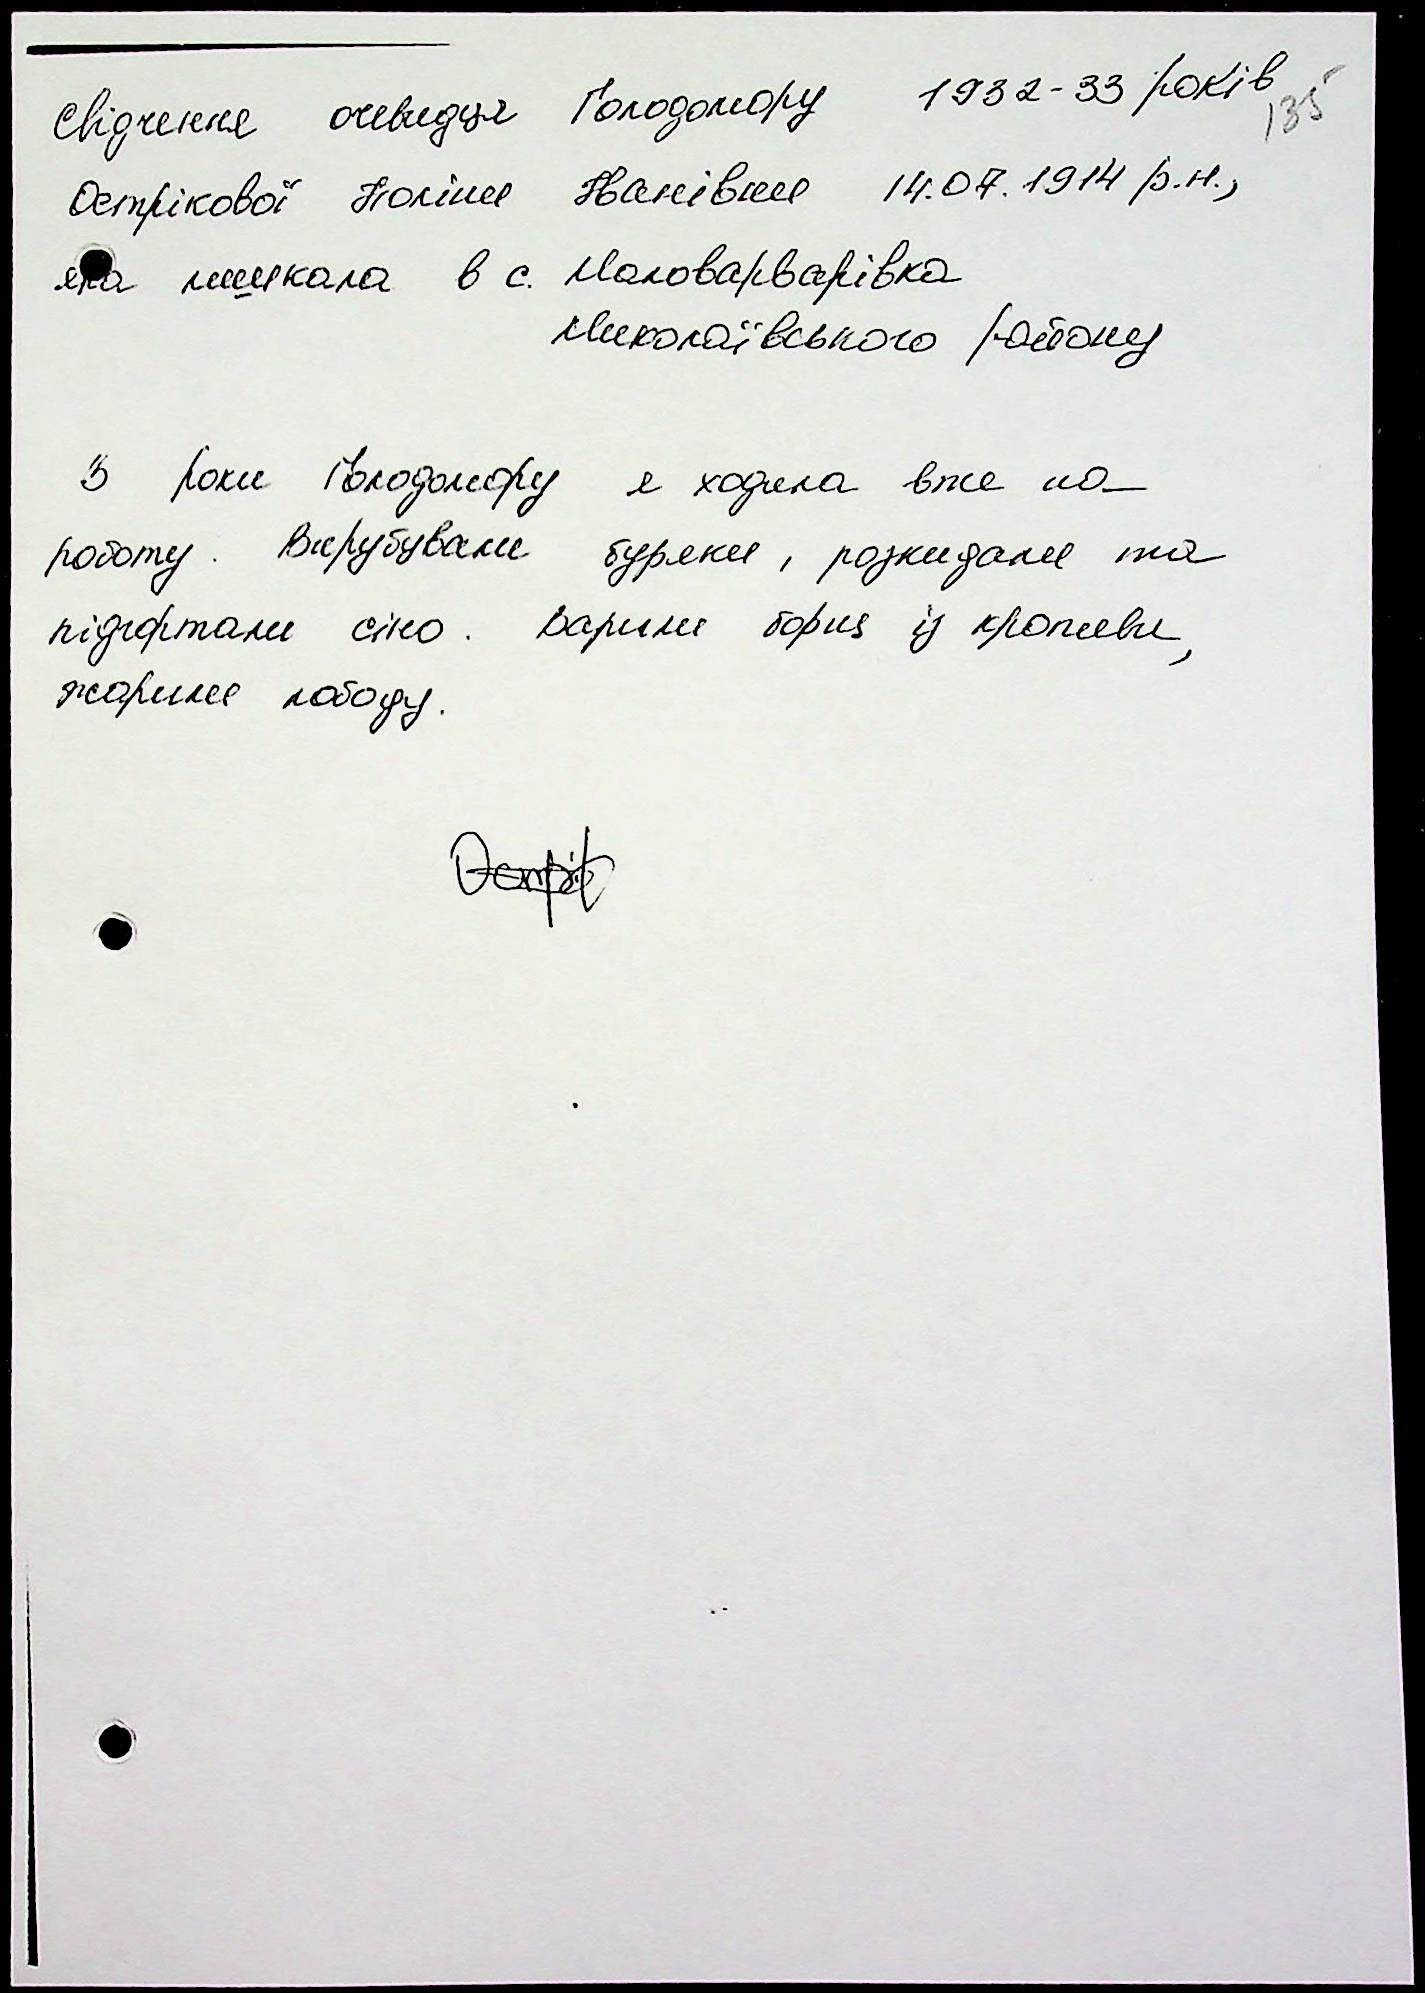 Свідчення очевидця Голодомору 1932-33 років
135
Острікової Поліни Іванівни 14.07.1914 р.н.,
яка мешкала в с. Маловарварівка
Миколаївського району
В роки Голодомору я ходила вже на
роботу. Вирубували буряки, розкидали та
підгортали сіно. Варили борщ із кропиви,
жарили лободу.